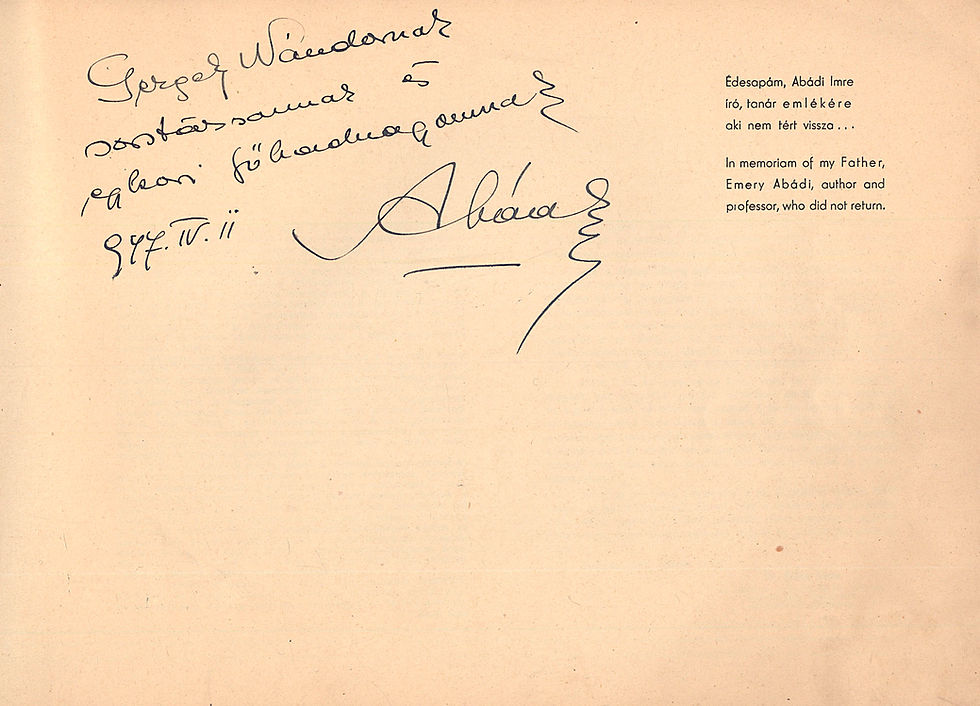 Gergely Nándornak
sorstárssamnak és
egykori főhadnagyomnak
947. IV. 11
Abádi
Édesapám, Abádi Imre
író, tanár emlékére
aki nem tért vissza...
In memoriam of my Father,
Emery Abádi, author and
professor, who did not return.